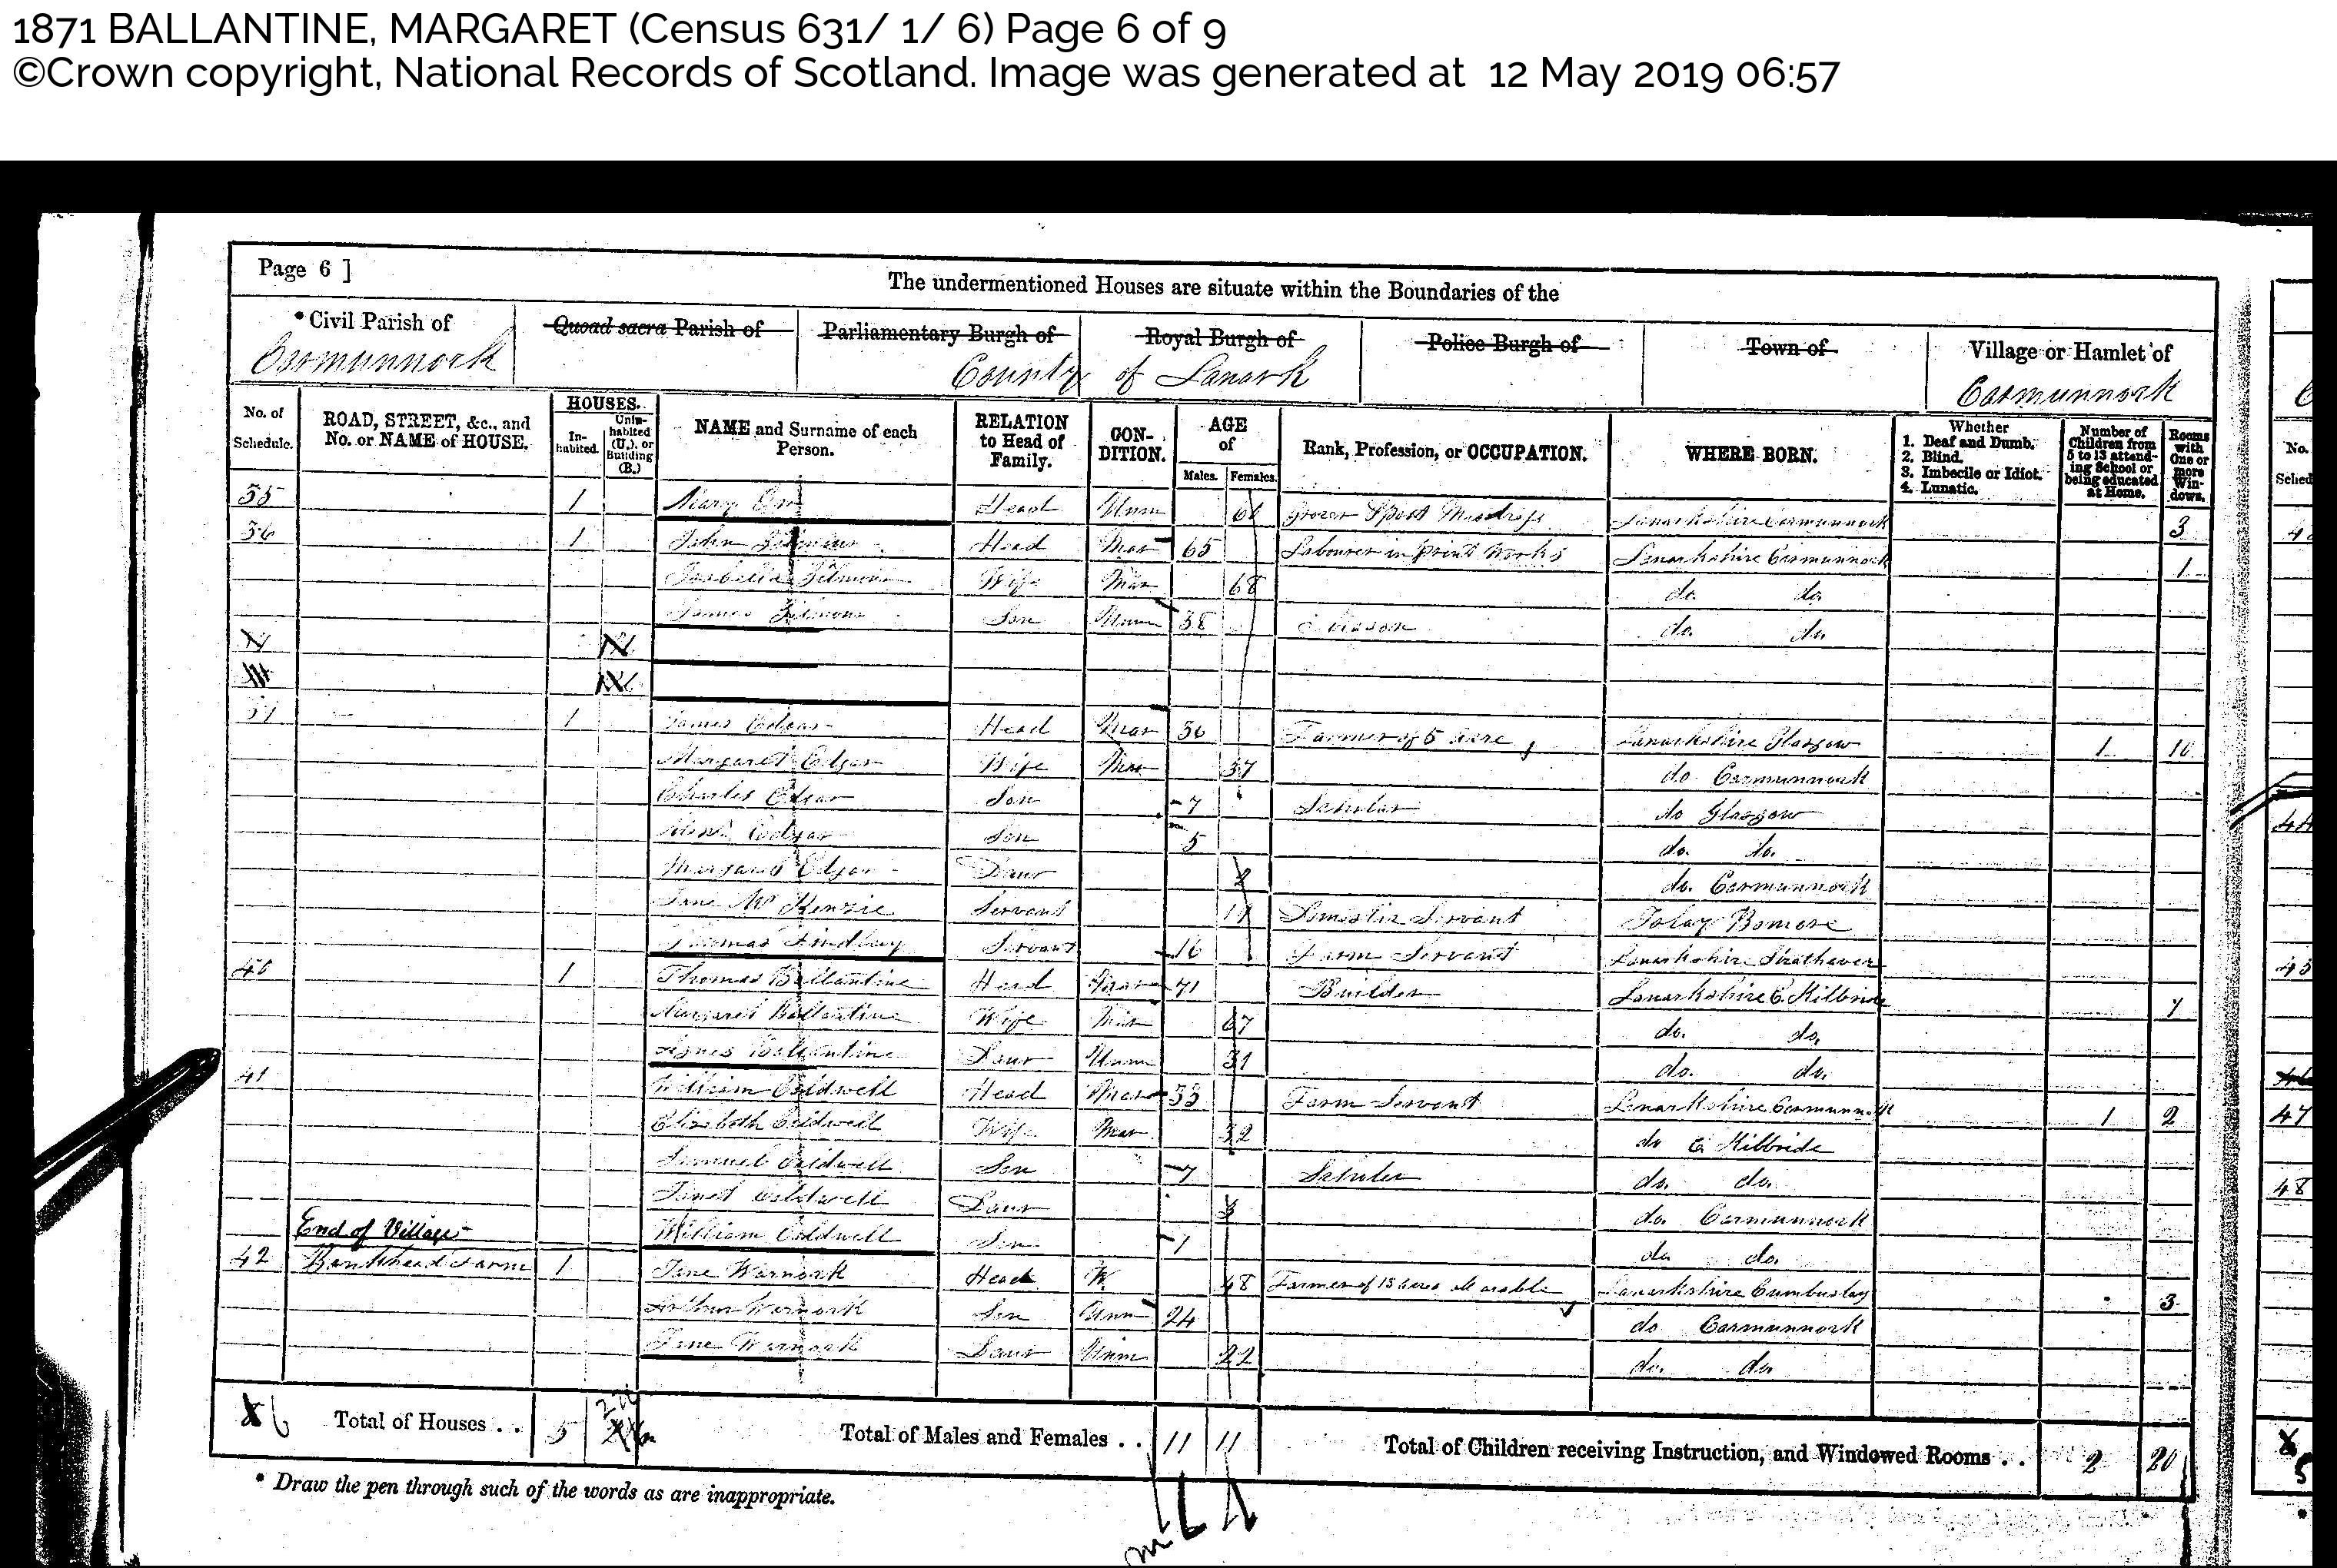 1871 BALLANTINE, MARGARET (Census 631/ 1/ 6) Page 6 of 9
©Crown copyright, National Records of Scotland. Image was generated at 12 May 2019 06:57
Page 6 ]
The undermentioned Houses are situate within the Boundaries of the
* Civil Parish of Quoad sacra Parish of Parliamentary Burgh of Royal Burgh of Police Burgh of Town of Village or Hamlet of
Carmunnock County of Lanark Carmunnock
No. of Schedule. ROAD, STREET, &c., and No. or NAME of HOUSE. HOUSES. In-habited. Unin-habited (U.), or Building (B.) NAME and Surname of each Person. RELATION to Head of Family. CON-DITION. AGE of Males. Females. Rank, Profession, or OCCUPATION. WHERE BORN. Whether 1. Deaf and Dumb. 2. Blind. 3. Imbecile or Idiot. 4. Lunatic. Number of Children from 5 to 13 attending School or being educated at Home. Rooms with One or more Windows.
1 Mary Head Unm Grocer Lanarkshire Carmunnock 3
1 John Head Mar 65 Labourer in Print Works Lanarkshire Carmunnock 1
Isabella Wife Mar 68 do. do.
James Son Unm 38 do. do.
1 James Edgar Head Mar 36 Farmer of 5 acre Lanarkshire Glasgow 1 10
Margaret Edgar Wife Mar 37 do. Carmunnock
Charles Edgar Son 7 Scholar do Glasgow
Edgar Son 5 do. do.
Margaret Edgar Daur 2 do. Carmunnock
Jane McKenzie Servant Domestic Servant Islay Bomore
Thomas Findlay Servant 16 Farm Servant Lanarkshire Strathaven
40 1 Thomas Ballantine Head Mar 71 Builder Lanarkshire E. Kilbride 1
Margaret Ballantine Wife Mar 67 do. do.
Agnes Ballantine Daur Unm 31 do. do.
41 William Coldwell Head Mar 33 Farm Servant Lanarkshire Carmunnock 1 2
Elizabeth Coldwell Wife Mar 32 do E Kilbride
Samuel Coldwell Son 7 Scholar do. do.
Janet Coldwell Daur 3 do. Carmunnock
End of Village William Coldwell Son 1 do. do.
42 Bankhead Farm 1 Jane Warnock Head W. 48 Farmer of 18 acres all arable Lanarkshire Cumbuslay 3
Arthur Warnock Son Unm 24 do Carmunnock
Jane Warnock Daur Unm 22 do. do
6 Total of Houses . . 5 Total of Males and Females . . 11 11 Total of Children receiving Instruction, and Windowed Rooms . . 2 20
* Draw the pen through such of the words as are inappropriate.
No.
Sched
45
47
48